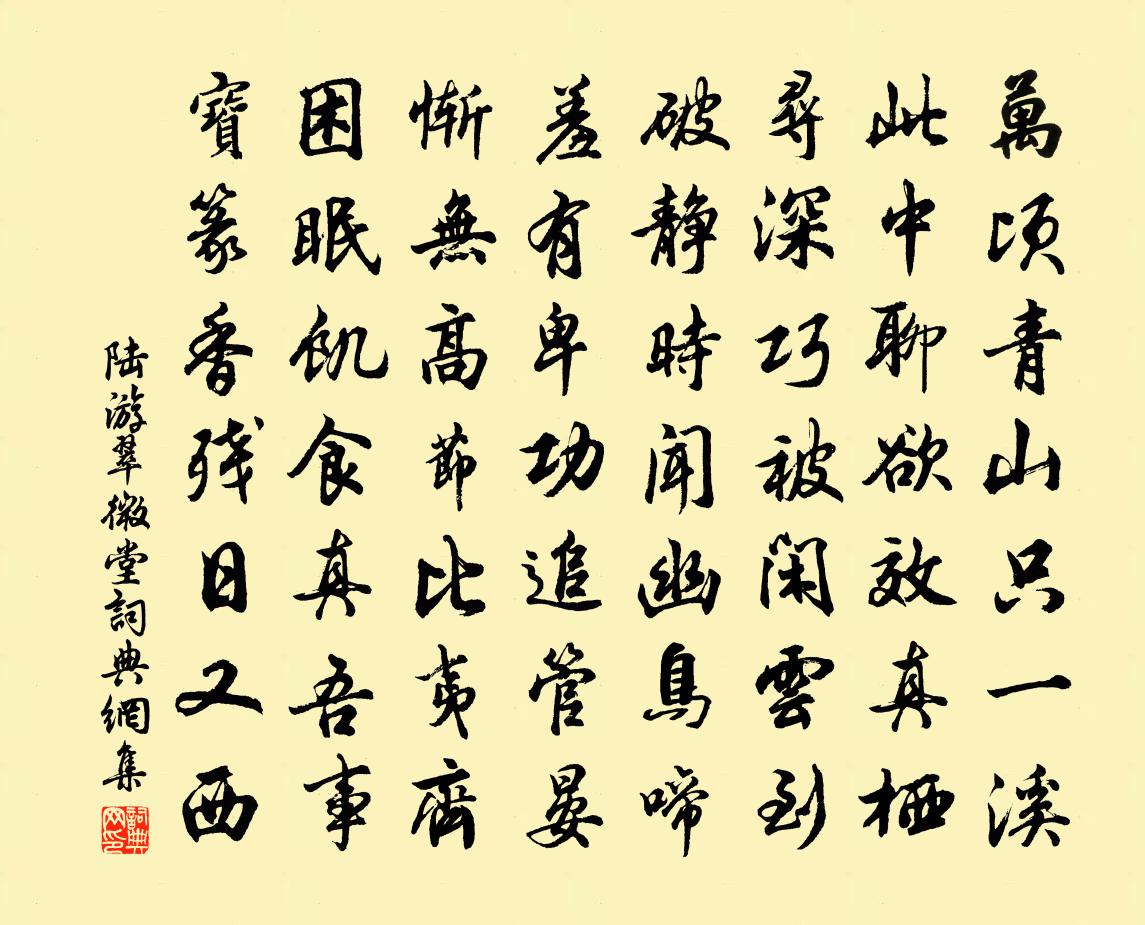 萬頃青山只一溪
此中聊欲效真栖
尋深巧被閑雲到
破靜時聞幽鳥啼
羞有卑功追管晏
慚無高節比夷齊
困眠飢食真吾事
寶篆香殘日又西
陆游翠微堂詞典網集
詞典网印